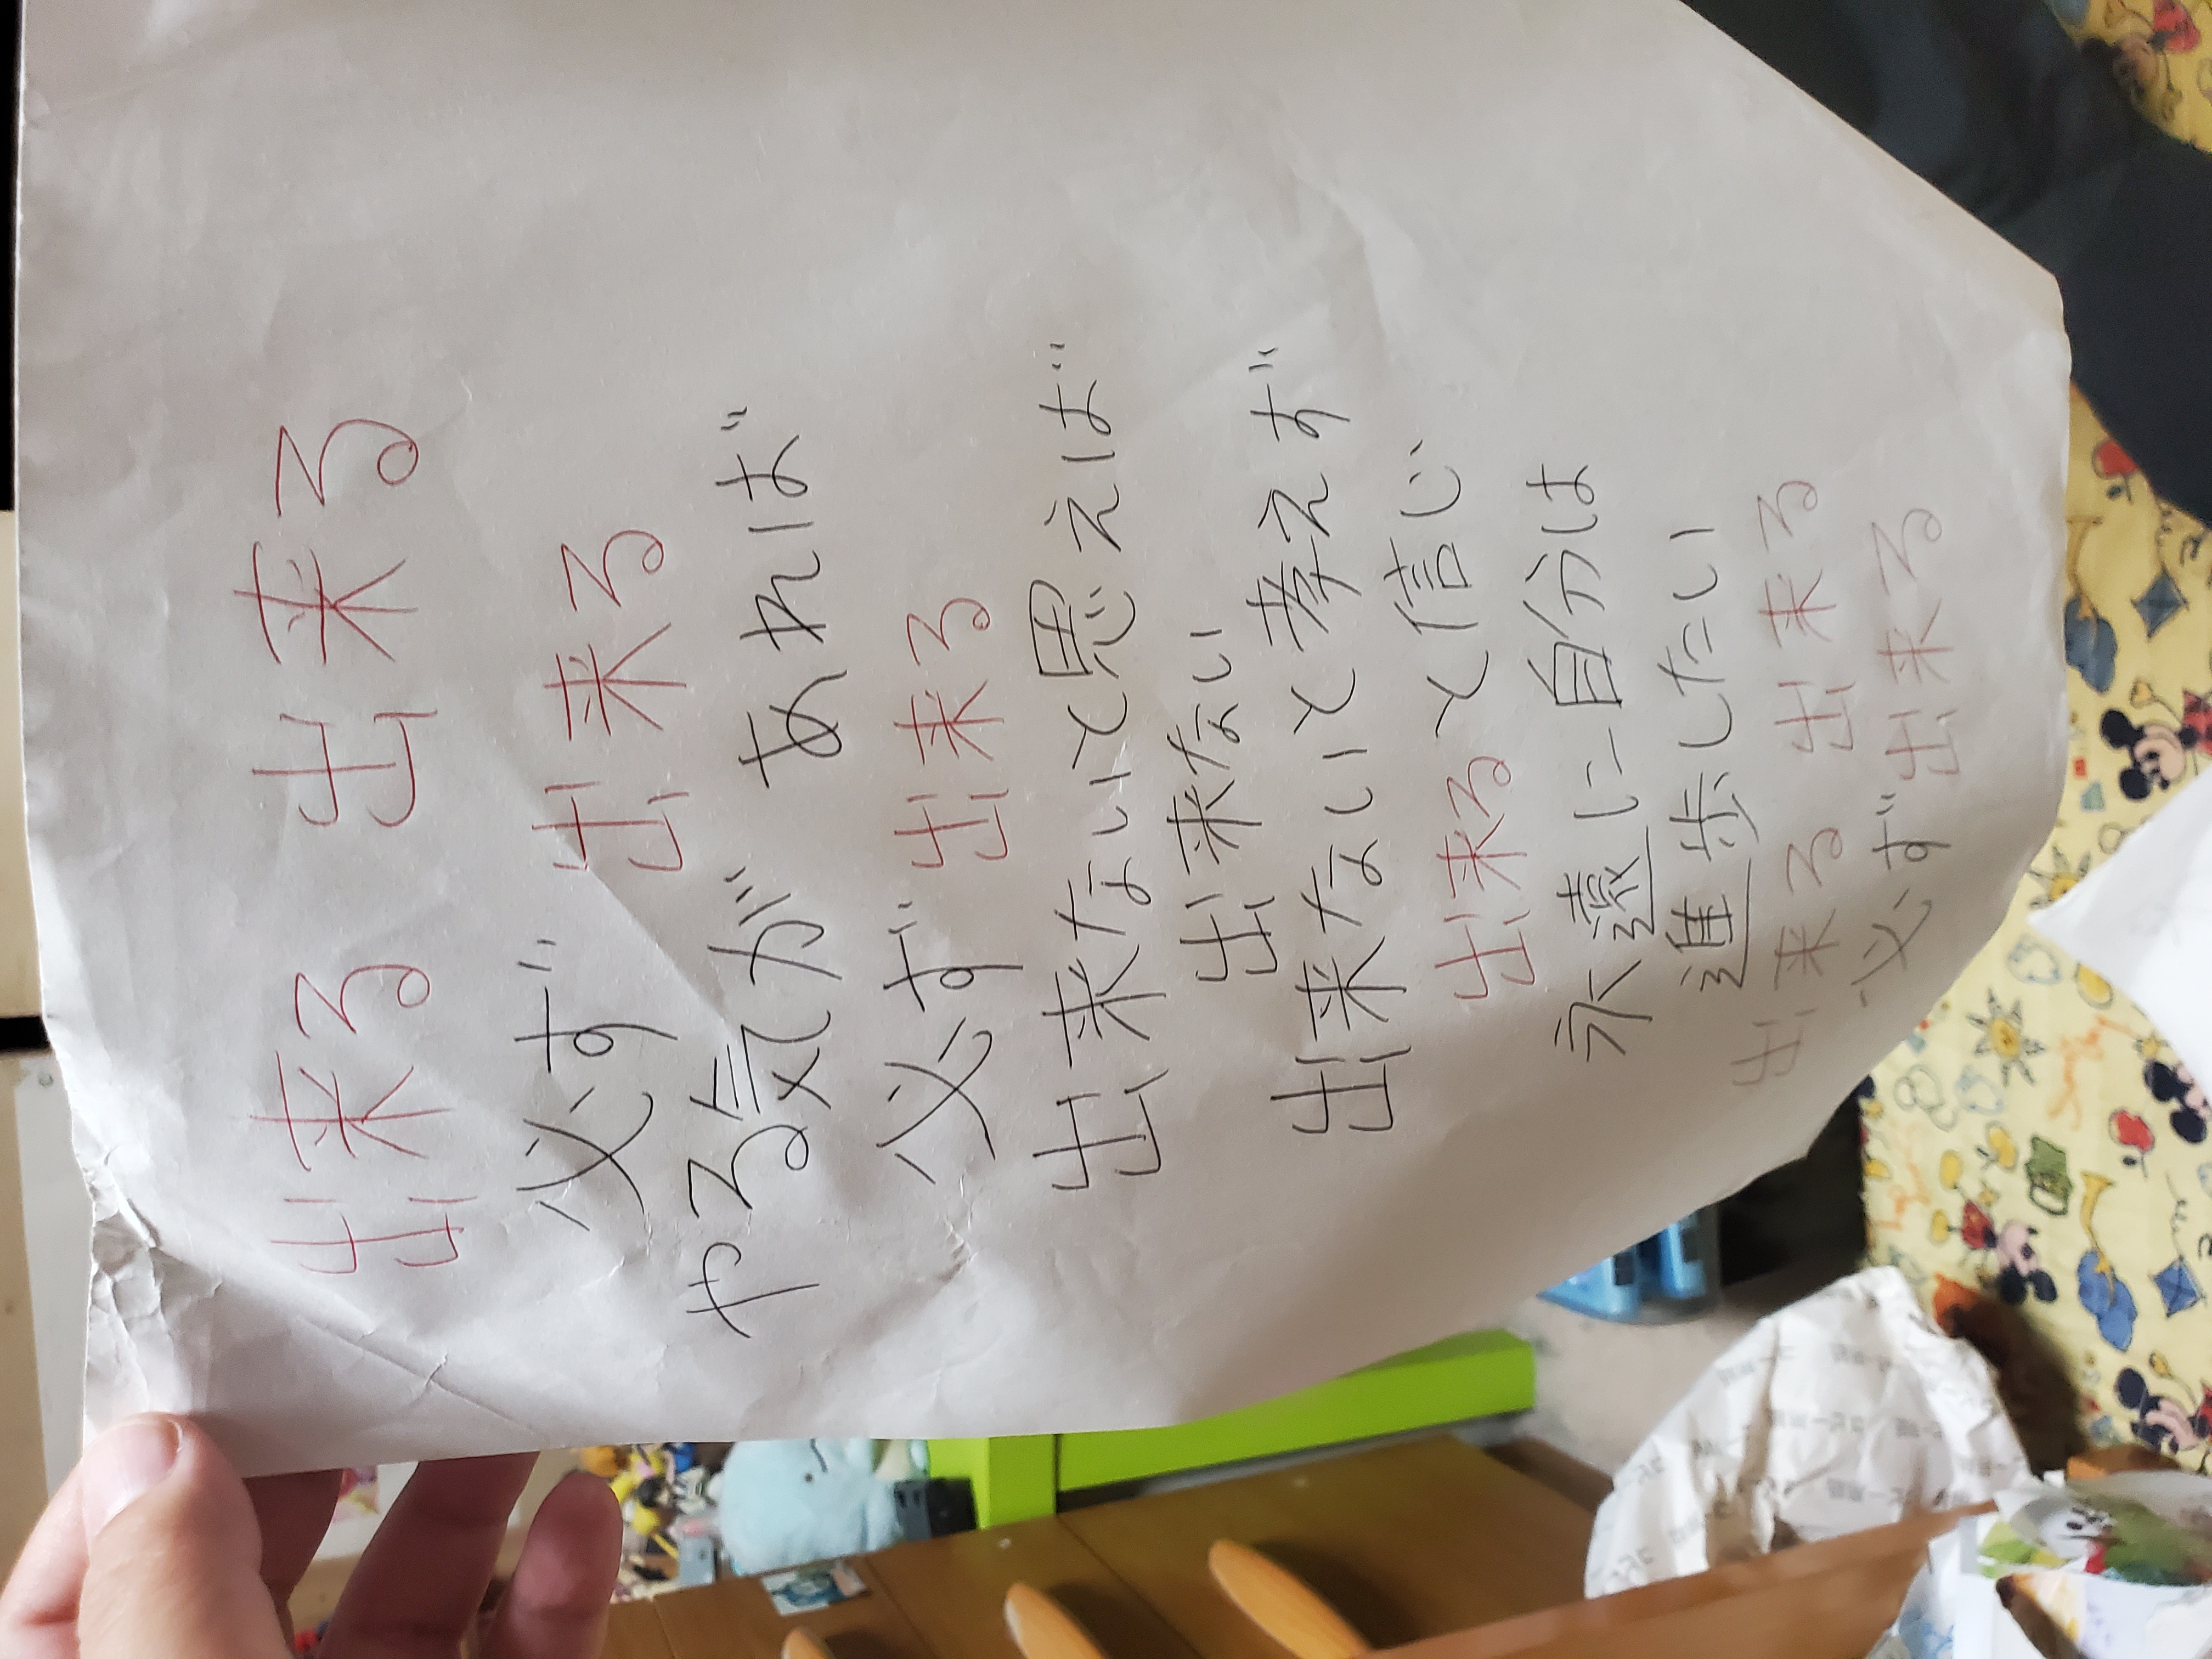 出来る 出来る
必ず 出来る
やる気が あれば
必ず 出来る
出来ないと思えば
出来ない
出来ないと考えず
出来ると信じ
永遠に自分は
進歩したい
出来る 出来る
必ず出来る